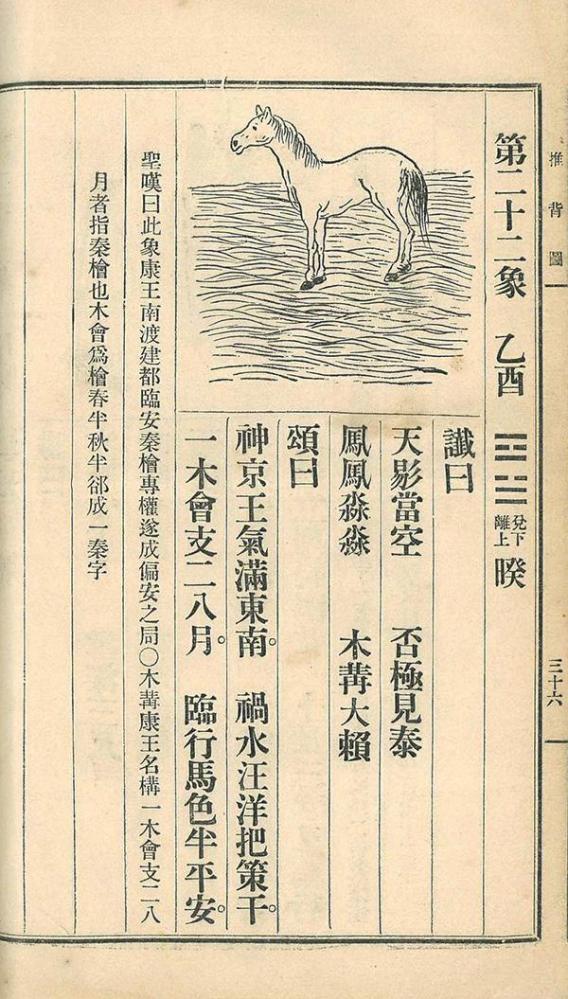 推背圖
三十六
第二十二象 乙酉 ䷥ 兌下離上 暌
讖曰
天當空 否極見泰
鳳鳳淼淼 木冓大賴
頌曰
神京王氣滿東南。 禍水汪洋把策干。
一木會支二八月。 臨行馬色半平安。
聖嘆曰此象康王南渡建都臨安秦檜專權遂成偏安之局〇木冓康王名構一木會支二八
月者指秦檜也木會爲檜春半秋半郤成一秦字